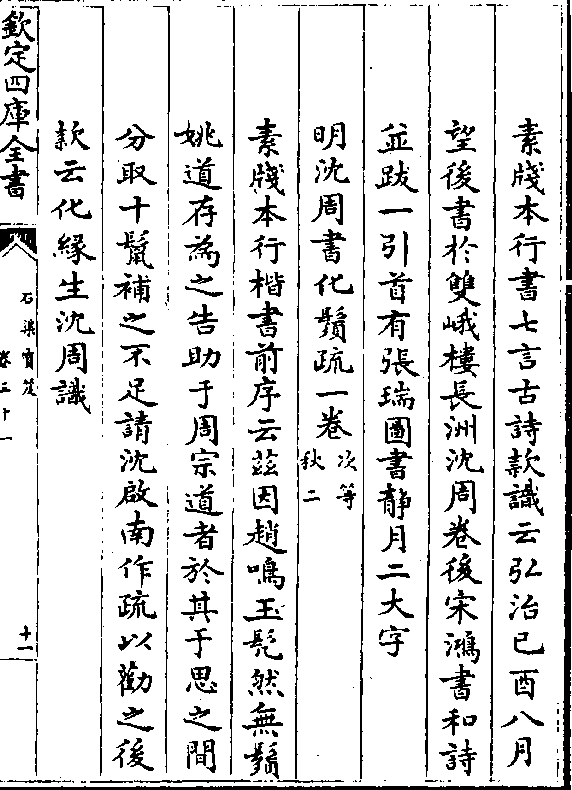 素牋本行書七言古詩款識云弘治己酉八月
望後書於雙峨樓長洲沈周卷後宋鴻書和詩
並跋一引首有張瑞圖書靜月二大字
明沈周書化鬚疏一卷次等秋二
素牋本行楷書前序云茲因趙鳴玉髡然無鬚
姚道存為之告助于周宗道者於其于思之間
分取十鬣補之不足請沈啟南作疏以勸之後
款云化緣生沈周識
欽定四庫全書
石渠寶笈
卷三十一
十一